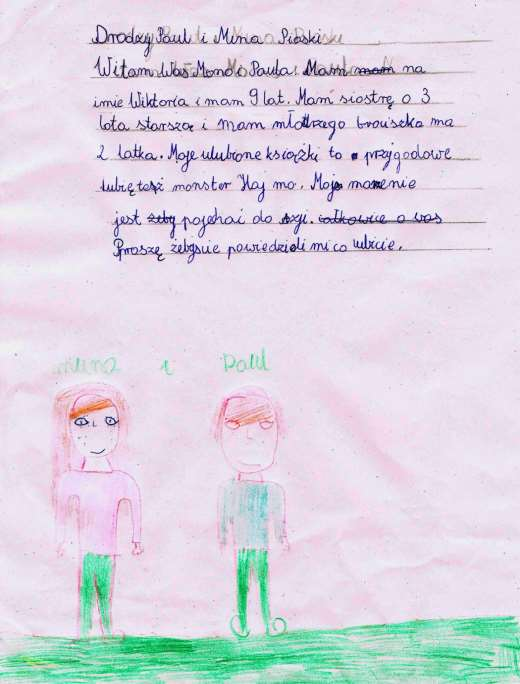 Drodzy Paul i Mina Piaski
Witam Was Mono i Paula. Mam mam na
imie Wiktoria i mam 9 lat. Mam siostrę o 3
lata starszą i mam młodzego braciszka ma
2 latka. Moje ulubione książki to przygodowe
lubię też monster Haj mo. Moje mażenie
jest żeby pojehać do całkowice o was
Pproszę żebyscie powiedzieli mi co lubicie.
Mina i Paul